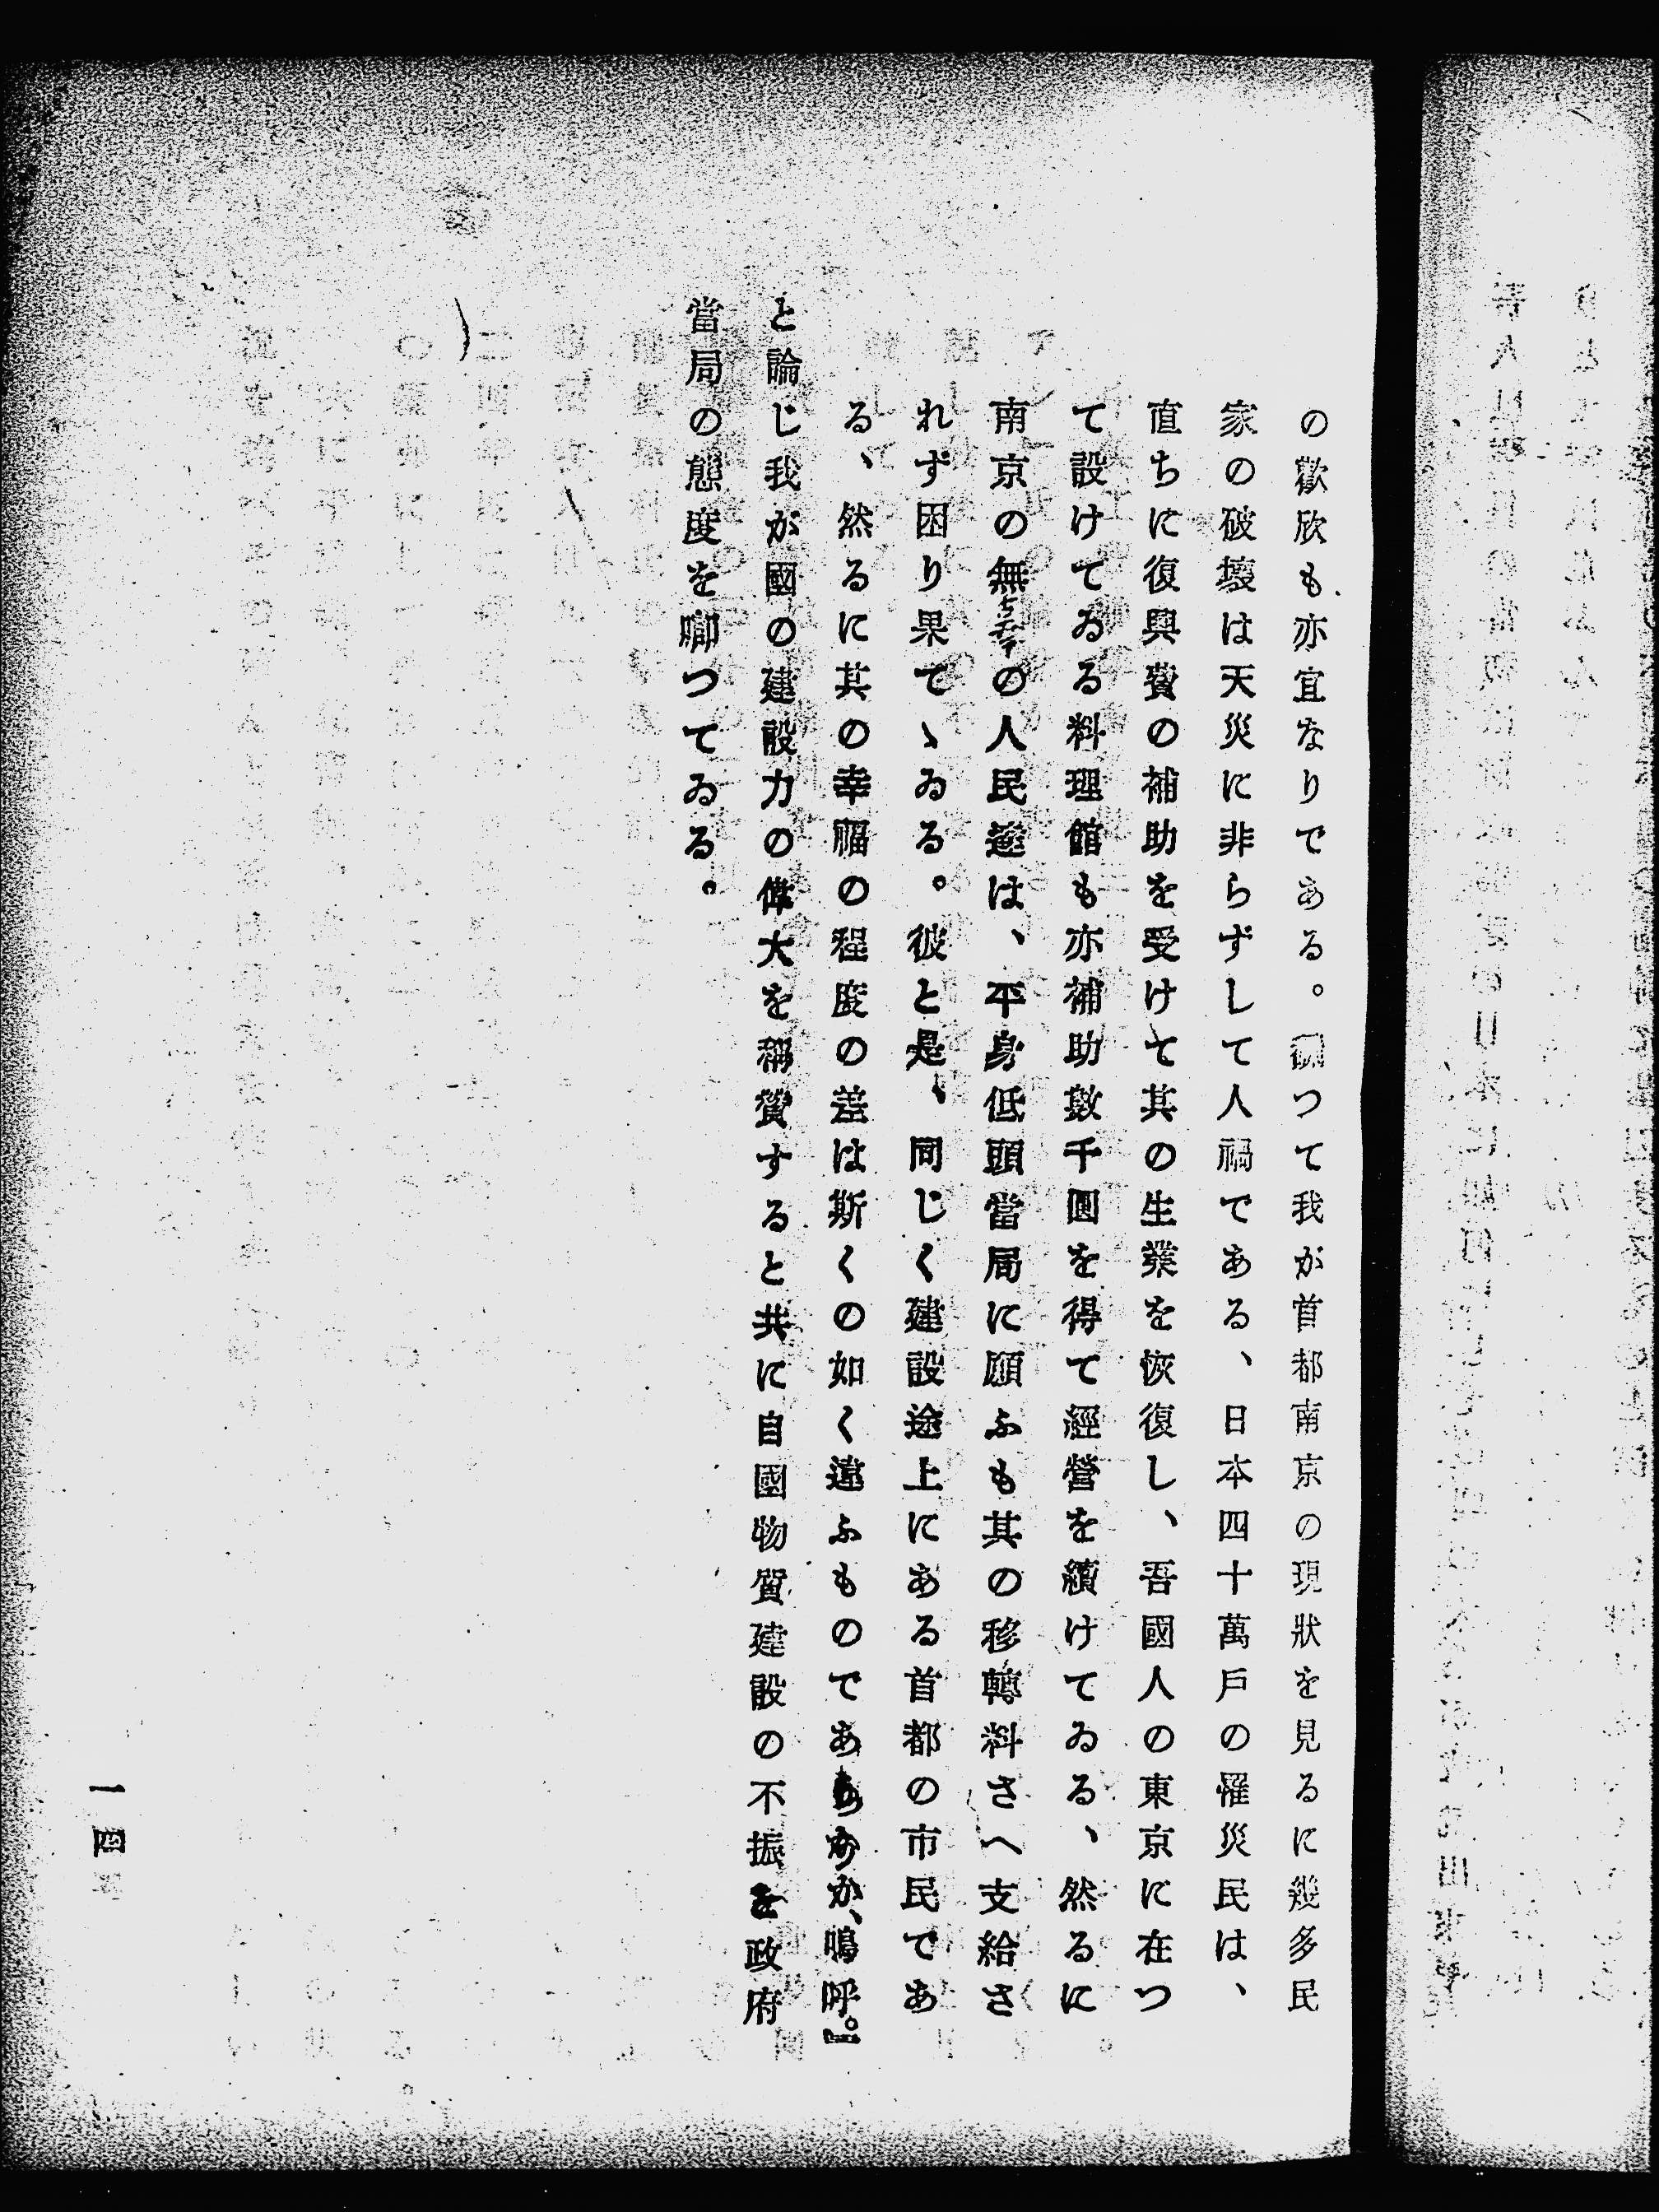 の歡欣も亦宜なりである。飜つて我が首都南京の現狀を見るに幾多民
家の破壞は天災に非らずして人禍である、日本四十萬戶の罹災民は、
直ちに復興費の補助を受けて其の生業を恢復し、吾國人の東京に在つ
て設けてゐる料理館も亦補助數千圓を得て經營を續けてゐる、然るに
南京の無の人民達は、平身低頭當局に願ふも其の移轉料さへ支給さ
れず困り果てゝゐる。彼と是、同じく建設途上にある首都の市民であ
る、然るに其の幸福の程度の差は斯くの如く違ふものであらうか、嗚呼。』
と論じ我が國の建設力の偉大を稱賛すると共に自國物質建設の不振を政府
當局の態度を啣つてゐる。
一四